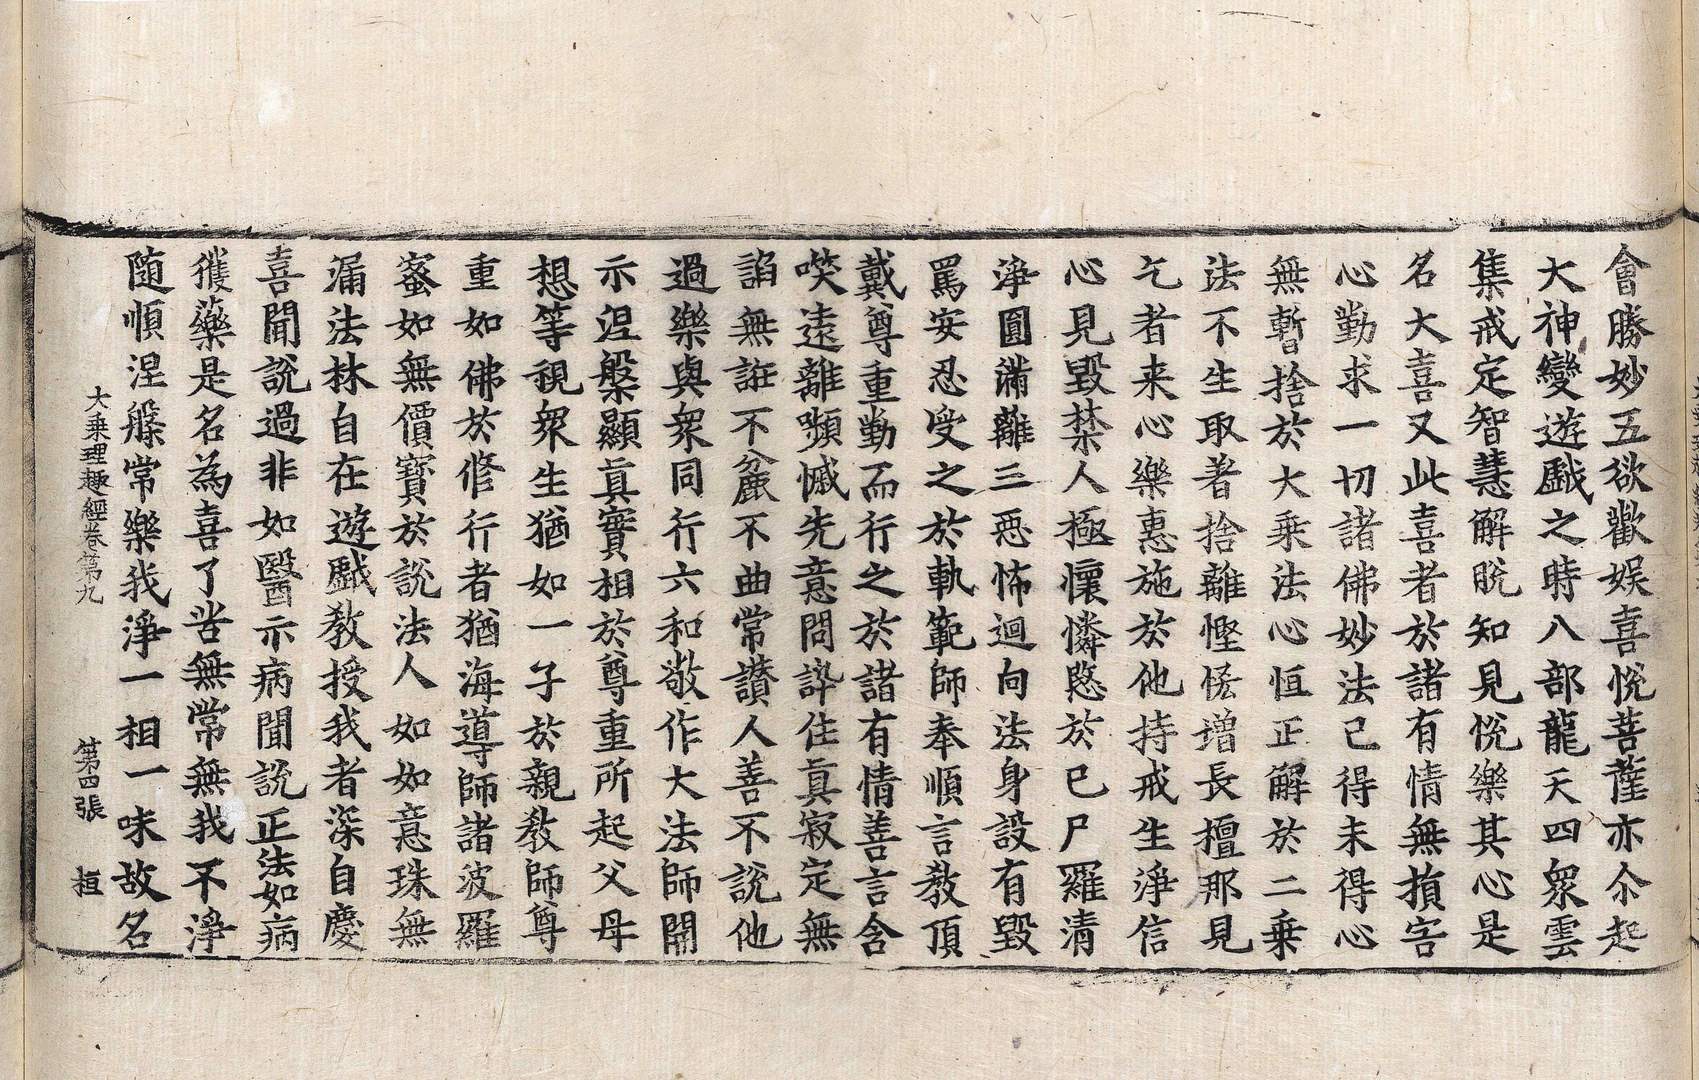 會勝妙五欲歡娛喜悅菩薩亦尒起
大神變遊戲之時八部龍天四衆雲
集戒定智慧解脫知見悅樂其心是
名大喜又此喜者於諸有情無損害
心勤求一切諸佛妙法已得未得心
無暫捨於大乗法心恒正解於二乗
法不生取著捨離慳悋增長檀那見
乞者来心樂惠施於他持戒生淨信
心見毀禁人極懷憐愍於已尸羅清
淨圓滿離三惡怖迴向法身設有毀
罵安忍受之於軌範師奉順言教頂
戴尊重勤而行之於諸有情善言含
唉遠離嚬慽先意問訊住真寂定無
謟無誑不麁不曲常讃人善不說他
過樂與衆同行六和敬作大法師開
示涅槃顯真實相於尊重所起父母
想等視衆生猶如一子於親教師尊
重如佛於修行者猶海導師諸波羅
蜜如無價寶於說法人如如意珠無
漏法林自在遊戲教授我者深自慶
喜聞說過非如醫示病聞說正法如病
獲藥是名為喜了苦無常無我不淨
随順涅槃常樂我淨一相一味故名
大乗理趣經卷第九 第四張 桓